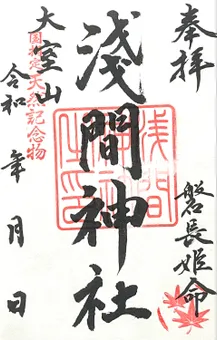 奉拝
磐長姫命
浅間神社
大室山
国指定天然記念物
令和 年 月 日